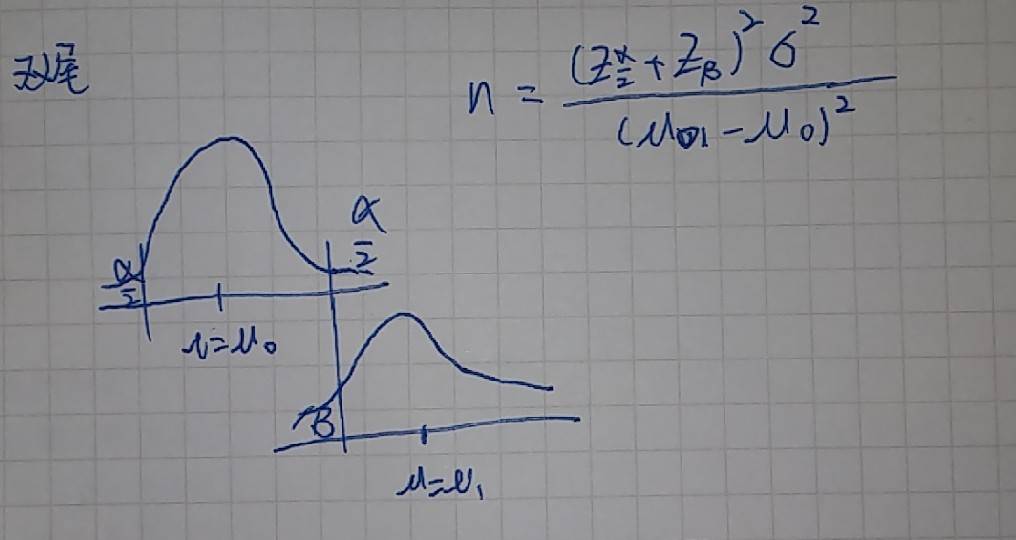 双尾
n = (Z α/2 + Z β)² σ² / (μ₁ - μ₀)²
α/2
α/2
μ=μ₀
β
μ=μ₁